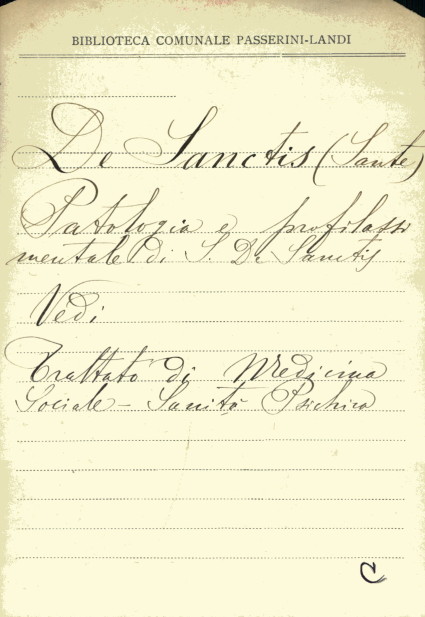 BIBLIOTECA COMUNALE PASSERINI-LANDI
De Sanctis (Sante)
Patologia e profilassi
mentale di S. De Sanctis
Vedi
Trattato di Medicina
Sociale - Sanità Psichica
C